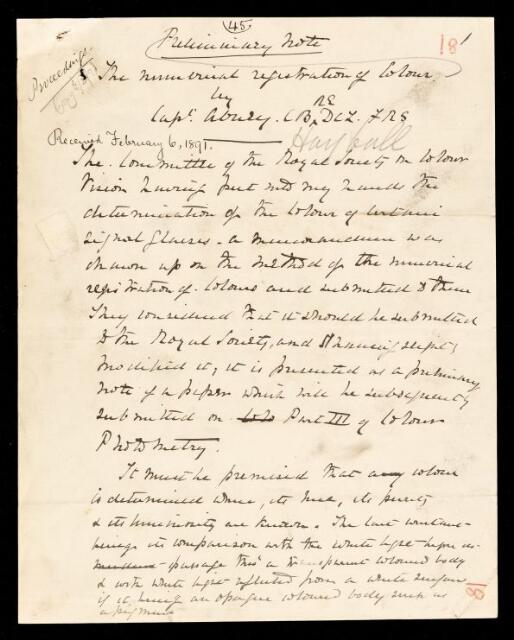 45
Preliminary Note
18
Proceedings
The numerical registration of Colour
by
Capt. Abney. CB, RE DCL. FRS
Received February 6, 1891.
The Committee of the Royal Society on Colour
Vision having put into my hands the
determination of the Colour of certain
signal glasses - a memorandum was
drawn up on the method of the numerical
registration of colours and submitted to them
They considered that it should be submitted
to the Royal Society, and having slightly
modified it, it is presented as a preliminary
note of a paper which will be subsequently
submitted on Part III of Colour
Photometry.
It must be premised that any colour
is determined when, its hue, its purity
& its luminosity are known. The last
being its comparison with the white light
passage thro' a transparent coloured body
& with white light reflected from a white surface
if it being an opaque coloured body such as
a pigment
18